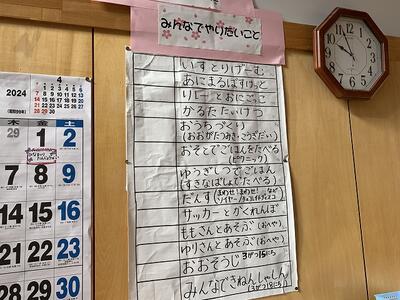 みんなでやりたいこと
いすとりげーむ
あにまるばすけっと
りレーとおにごっこ
かるたたいけつ
おうちづくり
(おおがたつみき・こうさだい)
おそとでごはんをたべる
(ピクニック)
ゆうぎしつでごはん
(すきなばしょでたべる)
だんす
サッカーとかくれんぼ
ももさんとあそぶ(おへや)
ゆりさんとあそぶ(おへや)
おおそうじ
みんなできねんしゃしん
2024
4
木 金 土
29 1 2
7 8 9
14 15 16
21 22 23
28 29 30